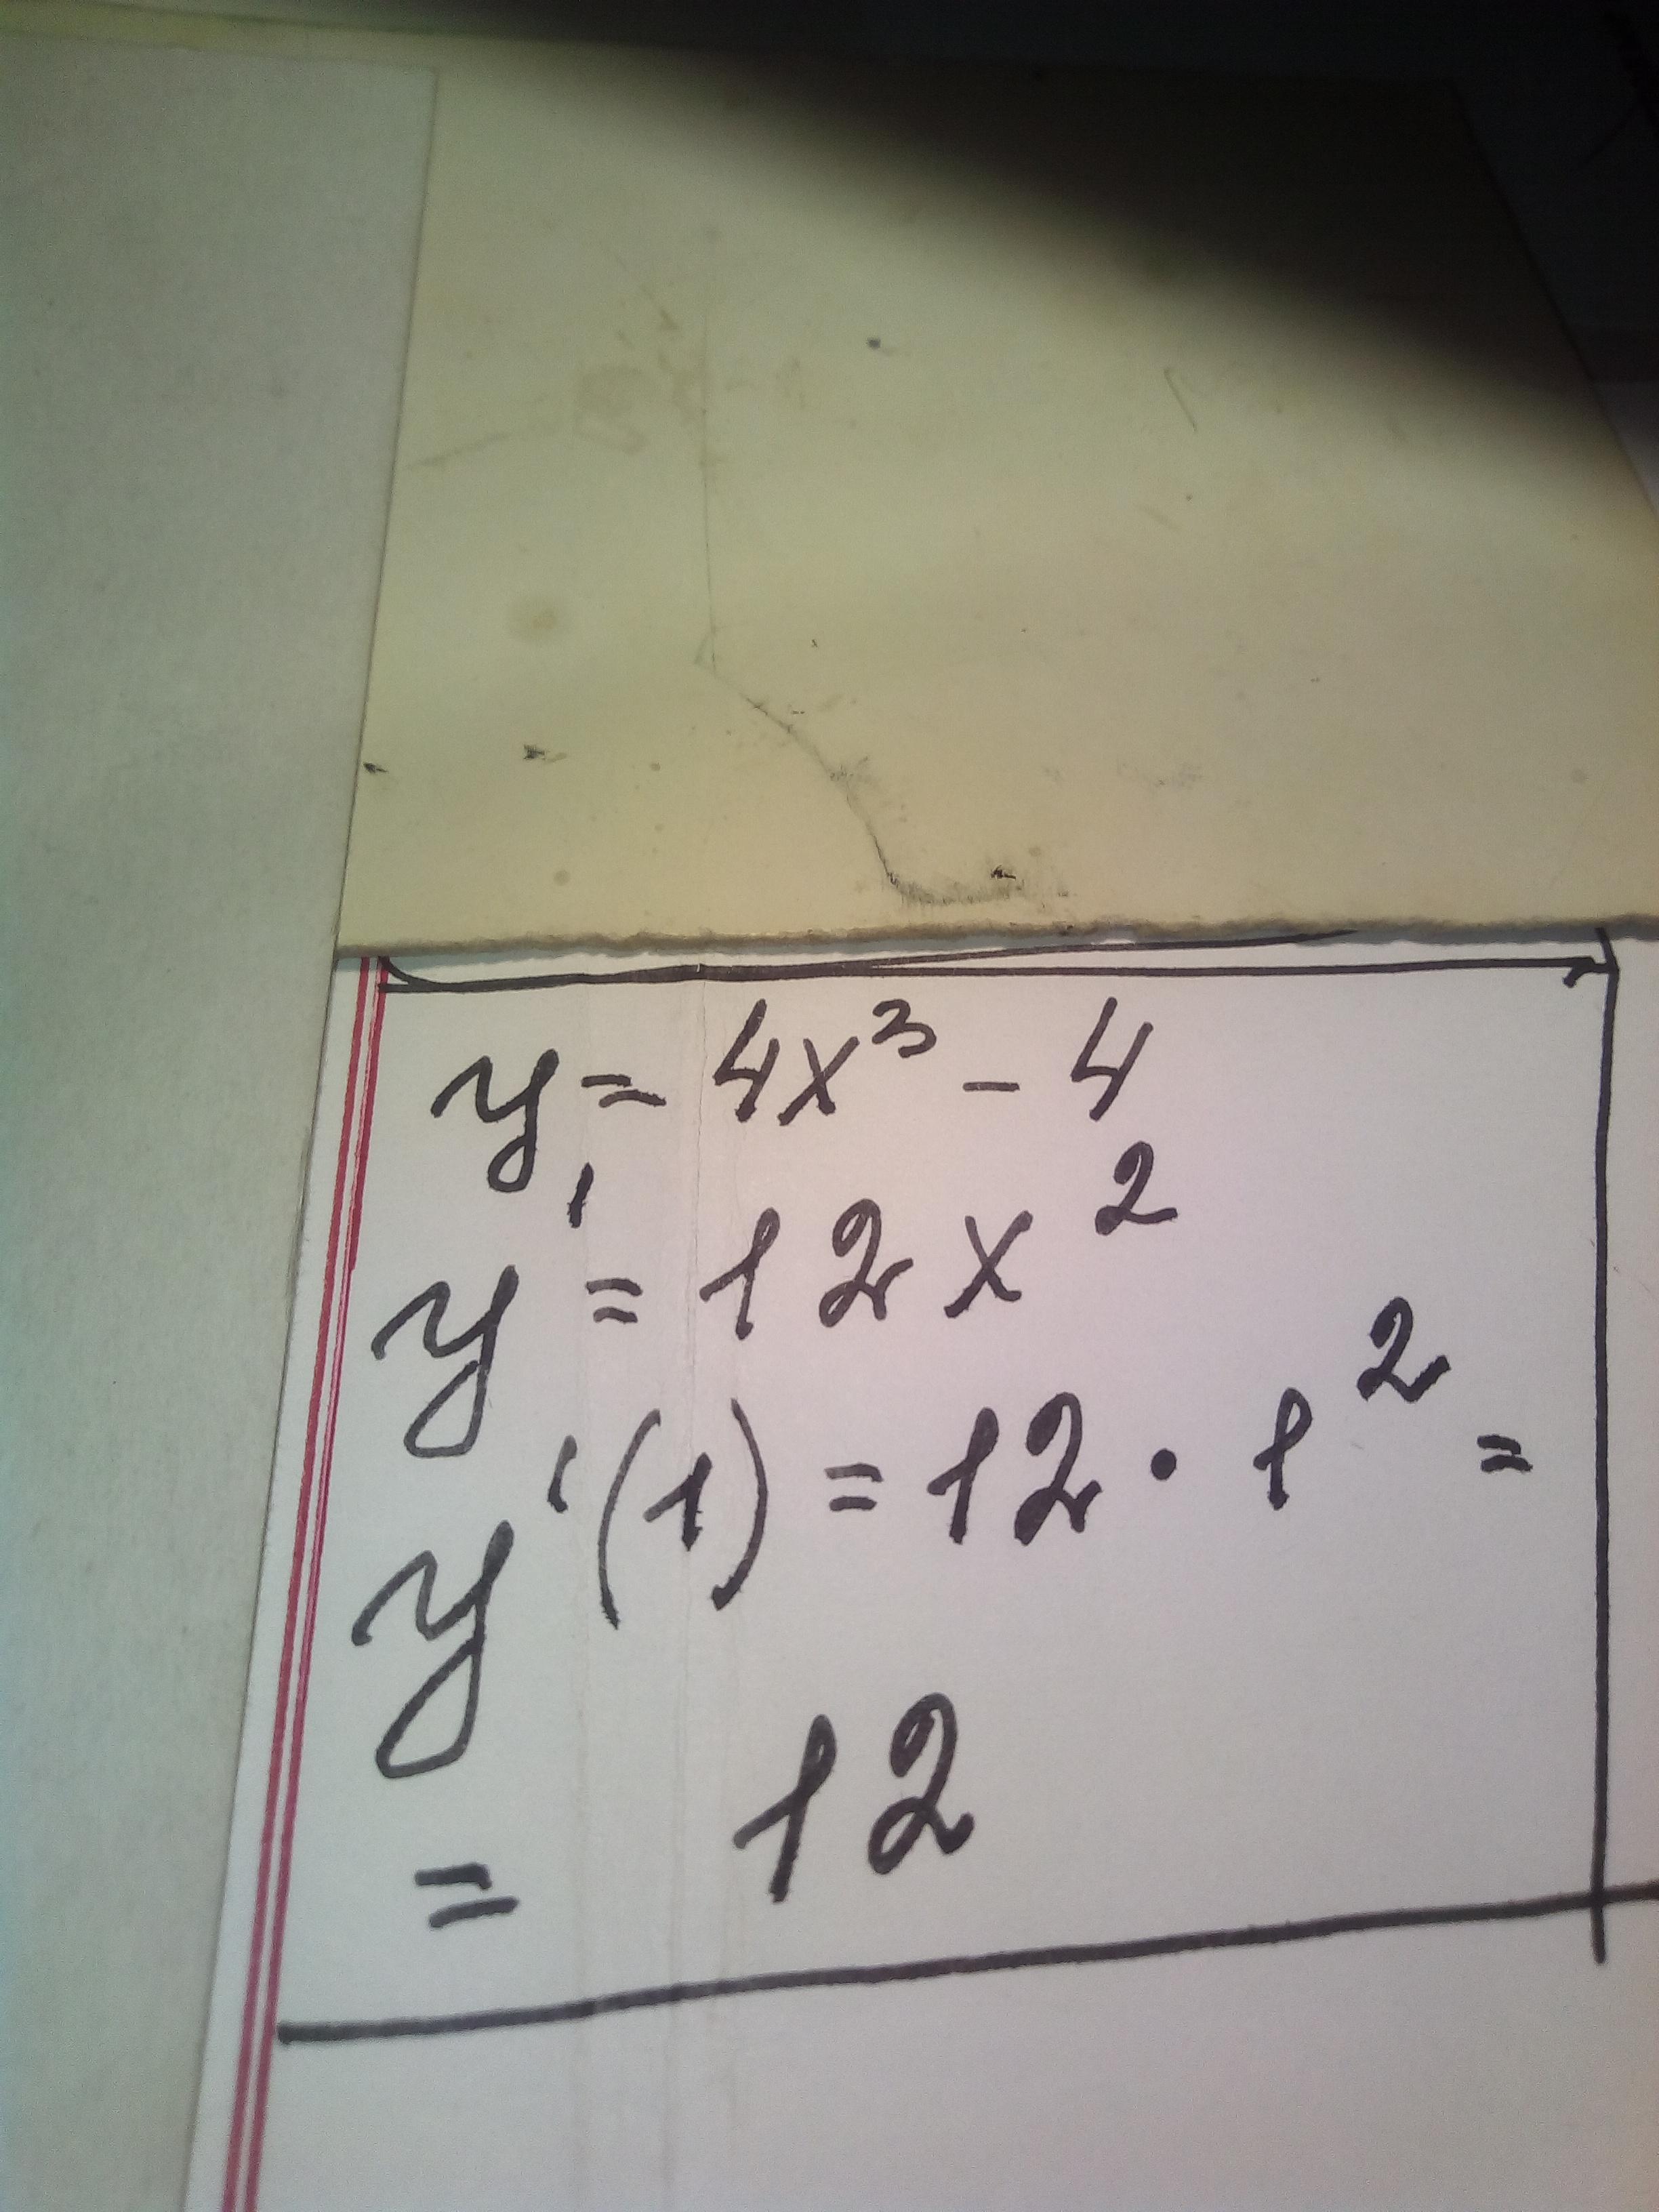 y = 4x³ - 4
y' = 12x²
y'(1) = 12 · 1² =
= 12